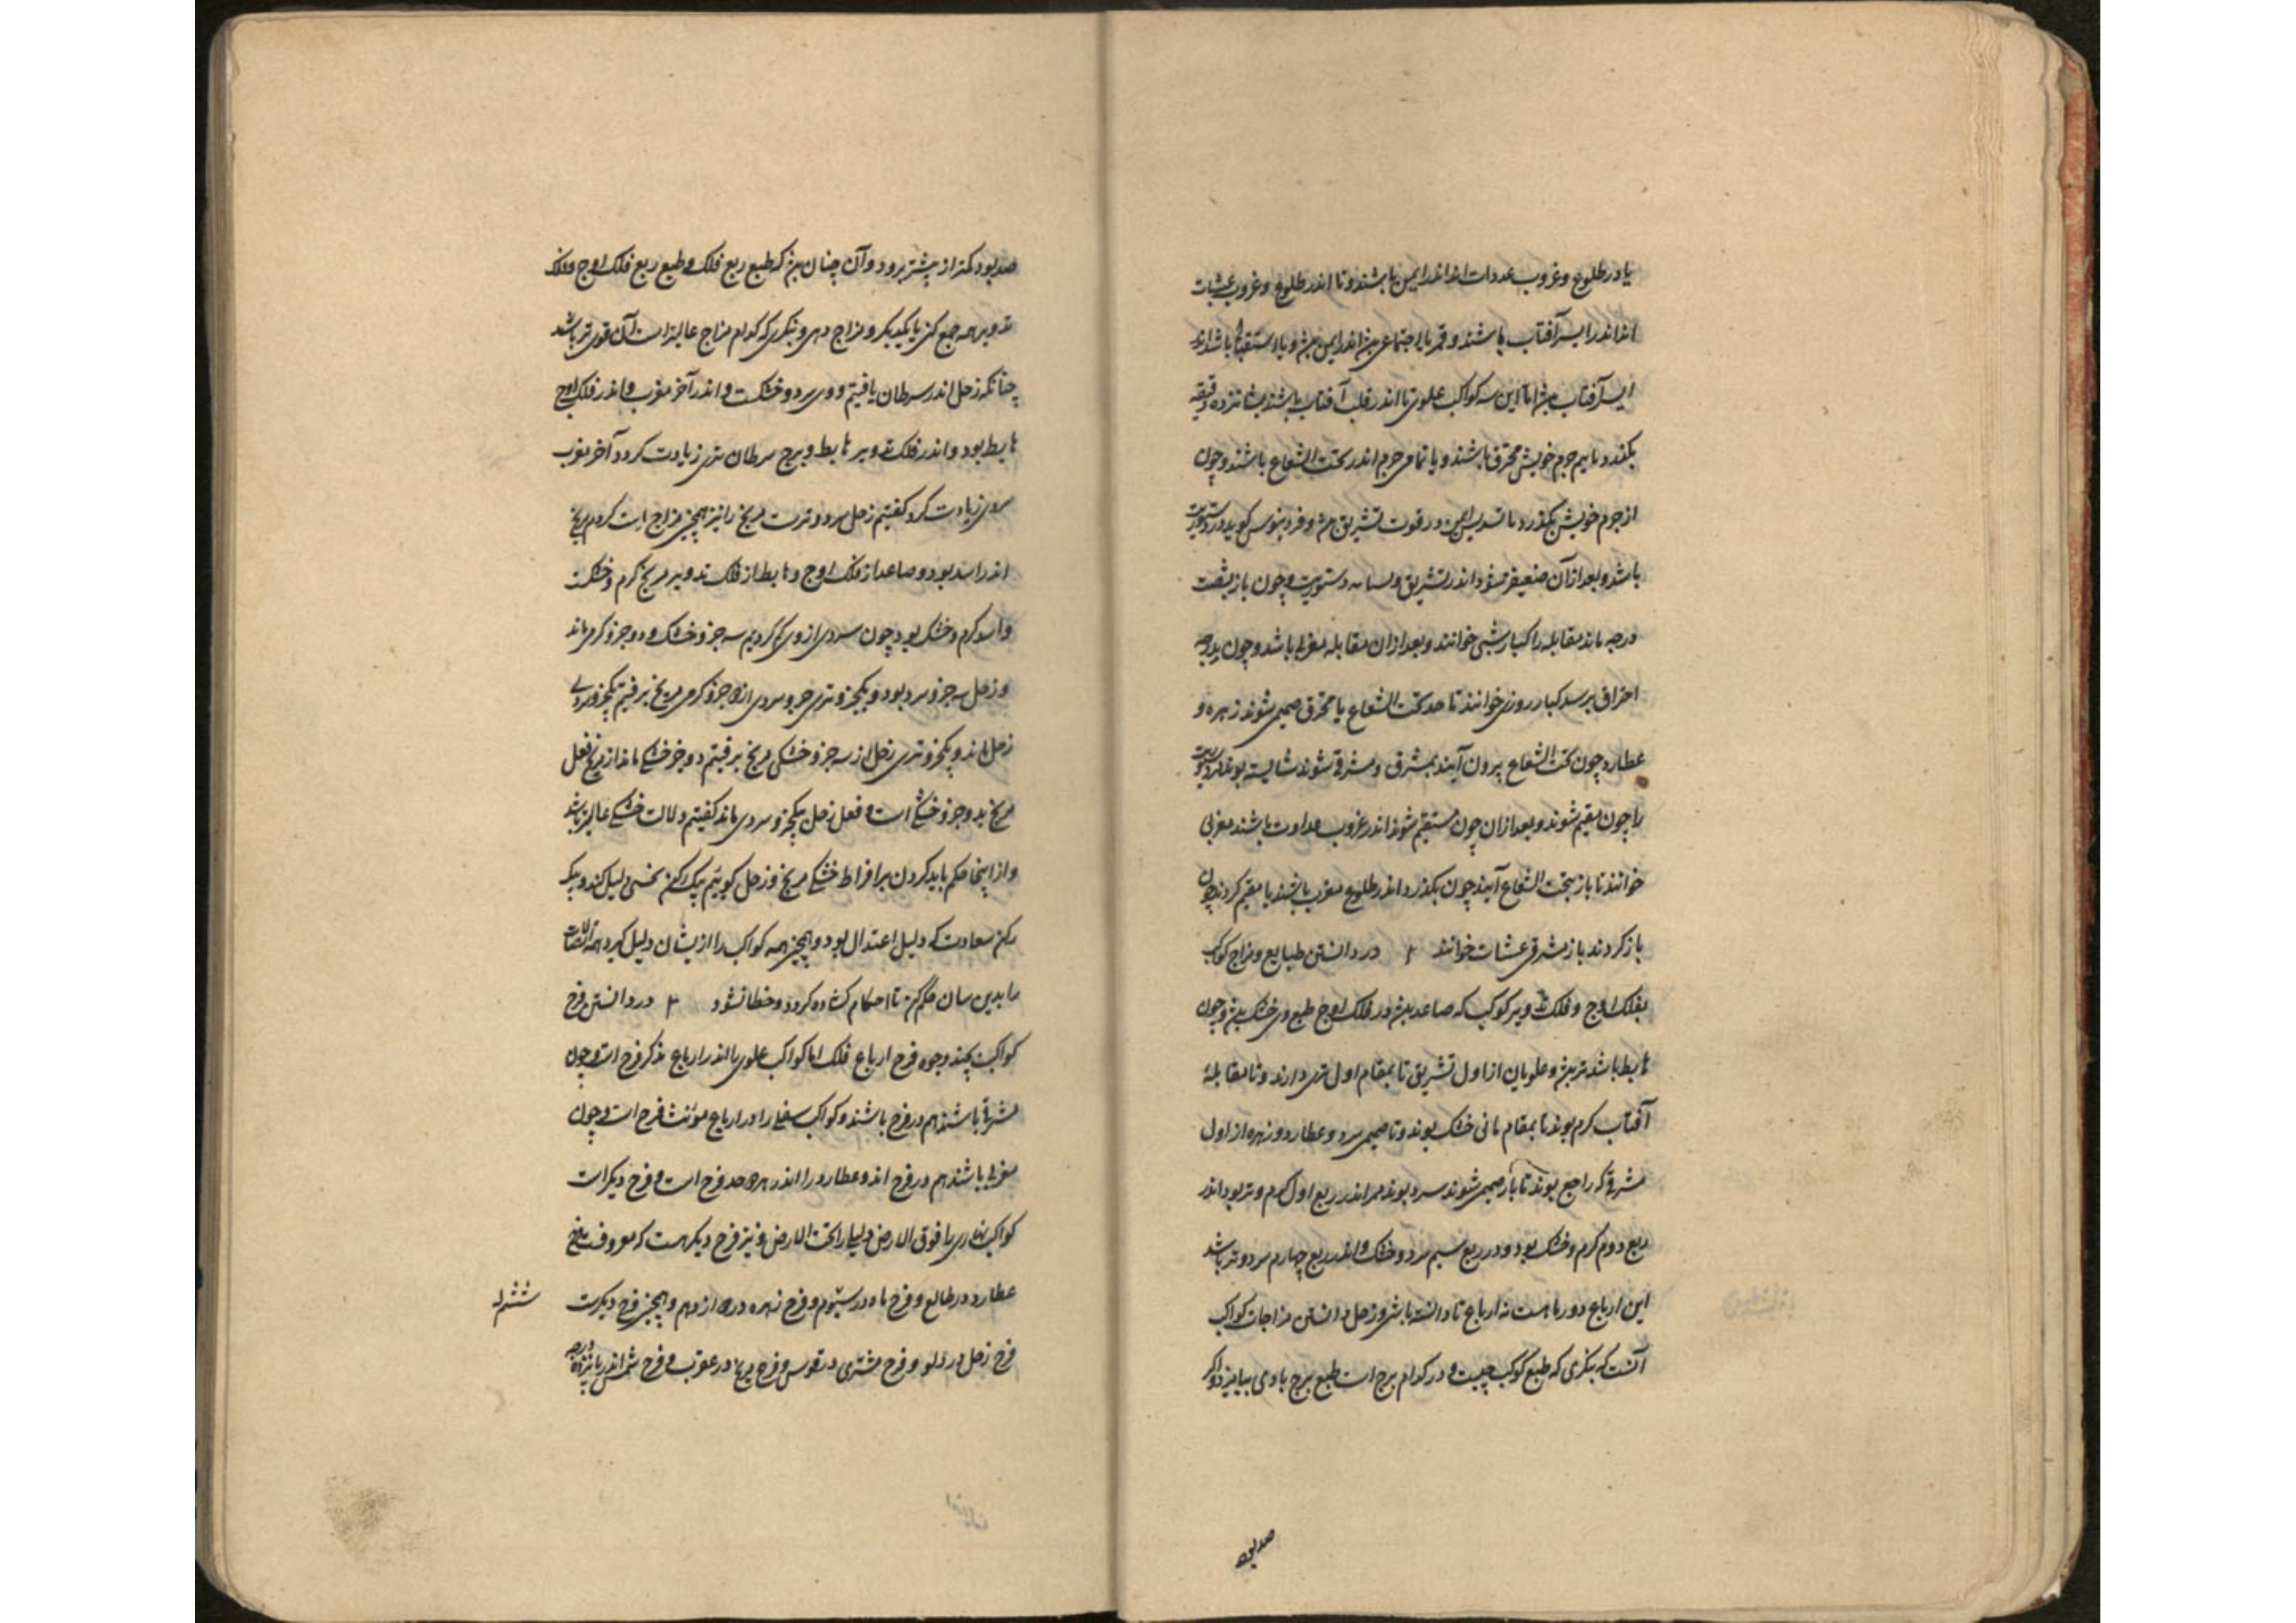 یا در طلوع و غروب غدوات اند اندر ایمن باشند و تا اندر طلوع و غروب عشیات
اند اندر ایسر آفتاب باشند و قمر با اجتماعی اندر ایمن و با استقبال باشد اندر
ایسر آفتاب اما این سه کواکب علوی تا اندر قلب آفتاب باشند شانزده دقیقه
بگذرد تا نیم جرم خویش محترق باشند و یا تمامی جرم اندر تحت الشعاع باشند و چون
از جرم خویش بگذرد تا تسدیس ایمن در قوت تشریق و فردینوس گوید در دستوریت
باشد و بعد از آن ضعیف شود اندر تشریق و دستوریت و چون باز بشصت
درجه ماند مقابله را کنار شبی خوانند و بعد از ان مقابله مغربی باشد و چون بدرجه
احتراق برسد کنار روزی خوانند تا حد تحت الشعاع یا محترق صمیمی شوند زهره و
عطارد چون تحت الشعاع بیرون آیند بمشرق و مشرقی شوند شایسته بوند دستوریت
را چون مقیم شوند و بعد از ان چون مستقیم شوند اندر غروب غدوات باشند مغربی
خوانند تا باز بتحت الشعاع آیند چون بگذرد اندر طلوع مغرب باشند تا مقیم گردند چون
باز گردند باز مشرقی عشیات خوانند در دانستن طبایع و مزاج کواکب
بفلک اوج و فلک تدویر کوکب که صاعد در فلک اوج طبع وی خشک و چون
هابط باشد تر و علویان از اول تشریق تا بمقام اول تری دارند و تا مقابلهٔ
آفتاب گرم بوند تا بمقام ثانی خشک بوند و تا صمیمی سرد و عطارد و زهره از اول
مشرقی که راجع بوند تا باز صمیمی شوند سرد بوند قمر اندر ربع اول گرم و تر بود اندر
ربع دوم گرم و خشک بود و در ربع سیم سرد و خشک و اندر ربع چهارم سرد و تر باشد
این ارباع دورهاست نه ارباع تا دانسته باشی و زحل دانستن مزاجات کواکب
آنست که بنگری که طبع کوکب چیست و در کدام برج است طبع برج با وی بیامیز و اگر
صد بود
صد بود کمتر از بیشتر برود و آن چنان که طبع ربع فلک و طبع ربع فلک اوج و فلک
تدویر همه جمع کنی با یکدیگر و مزاج دهی و بنگری که کدام مزاج غالبتر است آن قوی تر باشد
چنانکه زحل اندر سرطان یافتیم و وی سرد و خشکست و اندر آخر مغرب و اندر فلک اوج
هابط بود و اندر فلک تدویر هابط و برج سرطان تری زیادت کرد و آخر مغرب
سردی زیادت کرد گفتیم زحل سرد و ترست مریخ را نیز همچنین مزاج است کردیم مریخ
اندر اسد بود و صاعد از فلک اوج و هابط از فلک تدویر مریخ گرم و خشکست
و اسد گرم و خشک بود چون سردی از وی کم کردیم سه جزو خشک و دو جزو گرمی ماند
و زحل سه جزو سرد بود و یکجزو تری جزو سردی از دو جزو گرمی مریخ برفتیم یکجزو سردی
زحل ماند و یکجزو تری زحل از سه جزو خشکی مریخ برفتیم دو جزو خشکی ماند از مریخ فعل
مریخ بدو جزو خشکی است و فعل زحل بیکجزو سردی ماند گفتیم دلالت خشکی غالبتر باشد
و از اینجا حکم باید کردن بر افراط خشکی مریخ و زحل گوییم یک رکن نحسی دلیل کند و یک
رکن سعادت که دلیل اعتدال بود و همچنین همه کواکب را از یشان دلیل گیرد همه اتصالات
را بدین سان حکم کن تا احکام گشاده گردد و خطا نشود در دانستن فرح
کواکب بچند وجوه فرح ارباع فلک اما کواکب علوی را اندر ارباع مذکر فرح است و چون
مشرقی باشند هم در فرح باشند و کواکب سفلی را در ارباع مؤنث فرح است و چون
مغربی باشند هم در فرح اند و عطارد را اندر هر دو حد فرح است و فرح دیگر است
کواکب نهاری را فوق الارض و لیلی را تحت الارض و نیز فرح دیگر هست که معروفست فرح
عطارد در طالع و فرح ماه در سیوم و فرح زهره در دوازدهم و همچنین فرح دیگرست
ششم را
فرح زحل در دلو و فرح مشتری در قوس و فرح مریخ در عقرب و فرح شمس اندر پانزده درجه